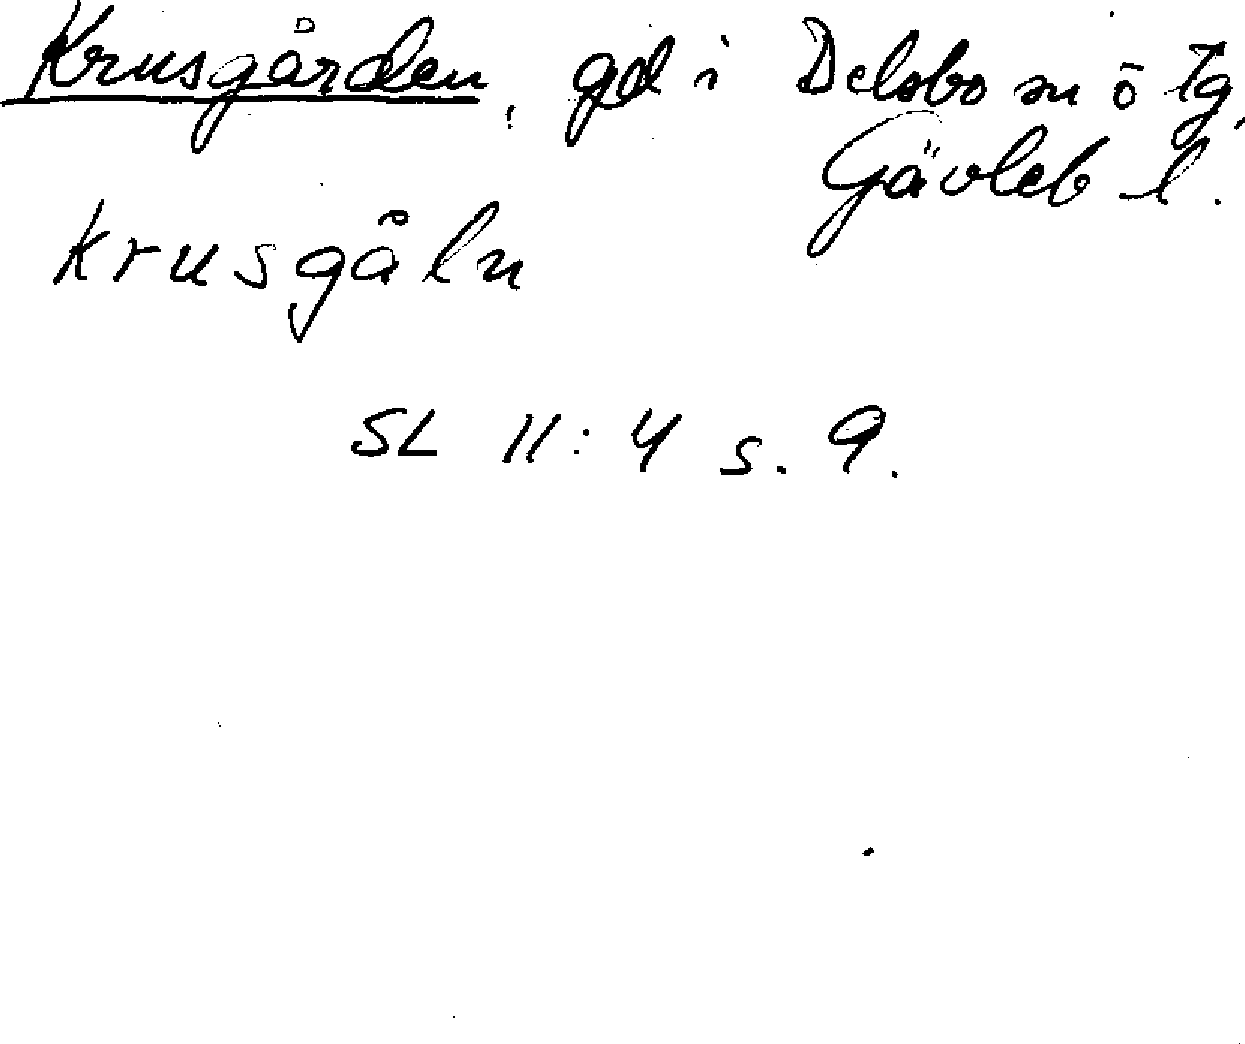 Krusgården, gd i Delsbo sn ö tg,
Gävleb l.
krusgåln
SL 11:4 s. 9.